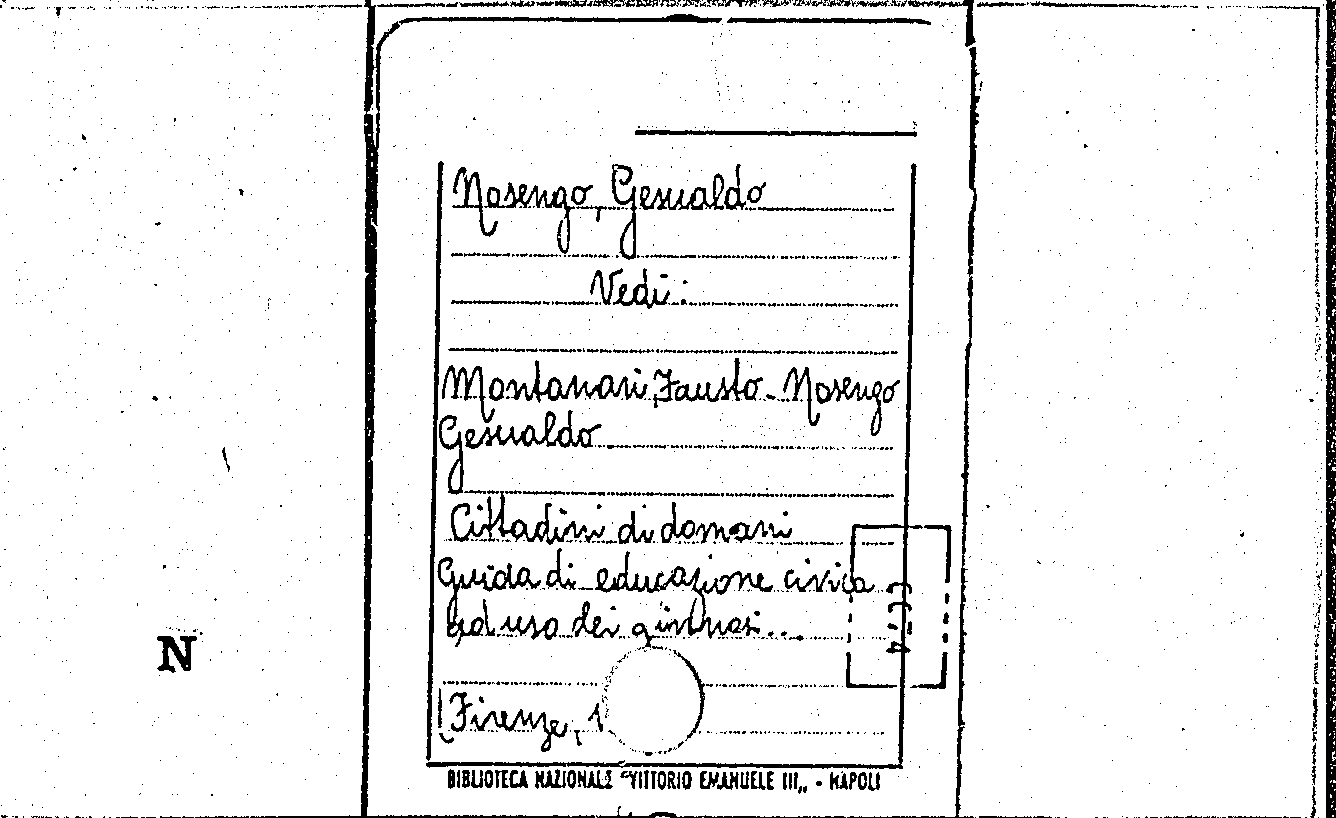 Nosengo, Gesualdo
Vedi:
Montanari, Fausto - Nosengo
Gesualdo
Cittadini di domani
Guida di educazione civica
ad uso dei ginnasi...
Firenze, 1
N
BIBLIOTECA NAZIONALE "VITTORIO EMANUELE III„ - NAPOLI